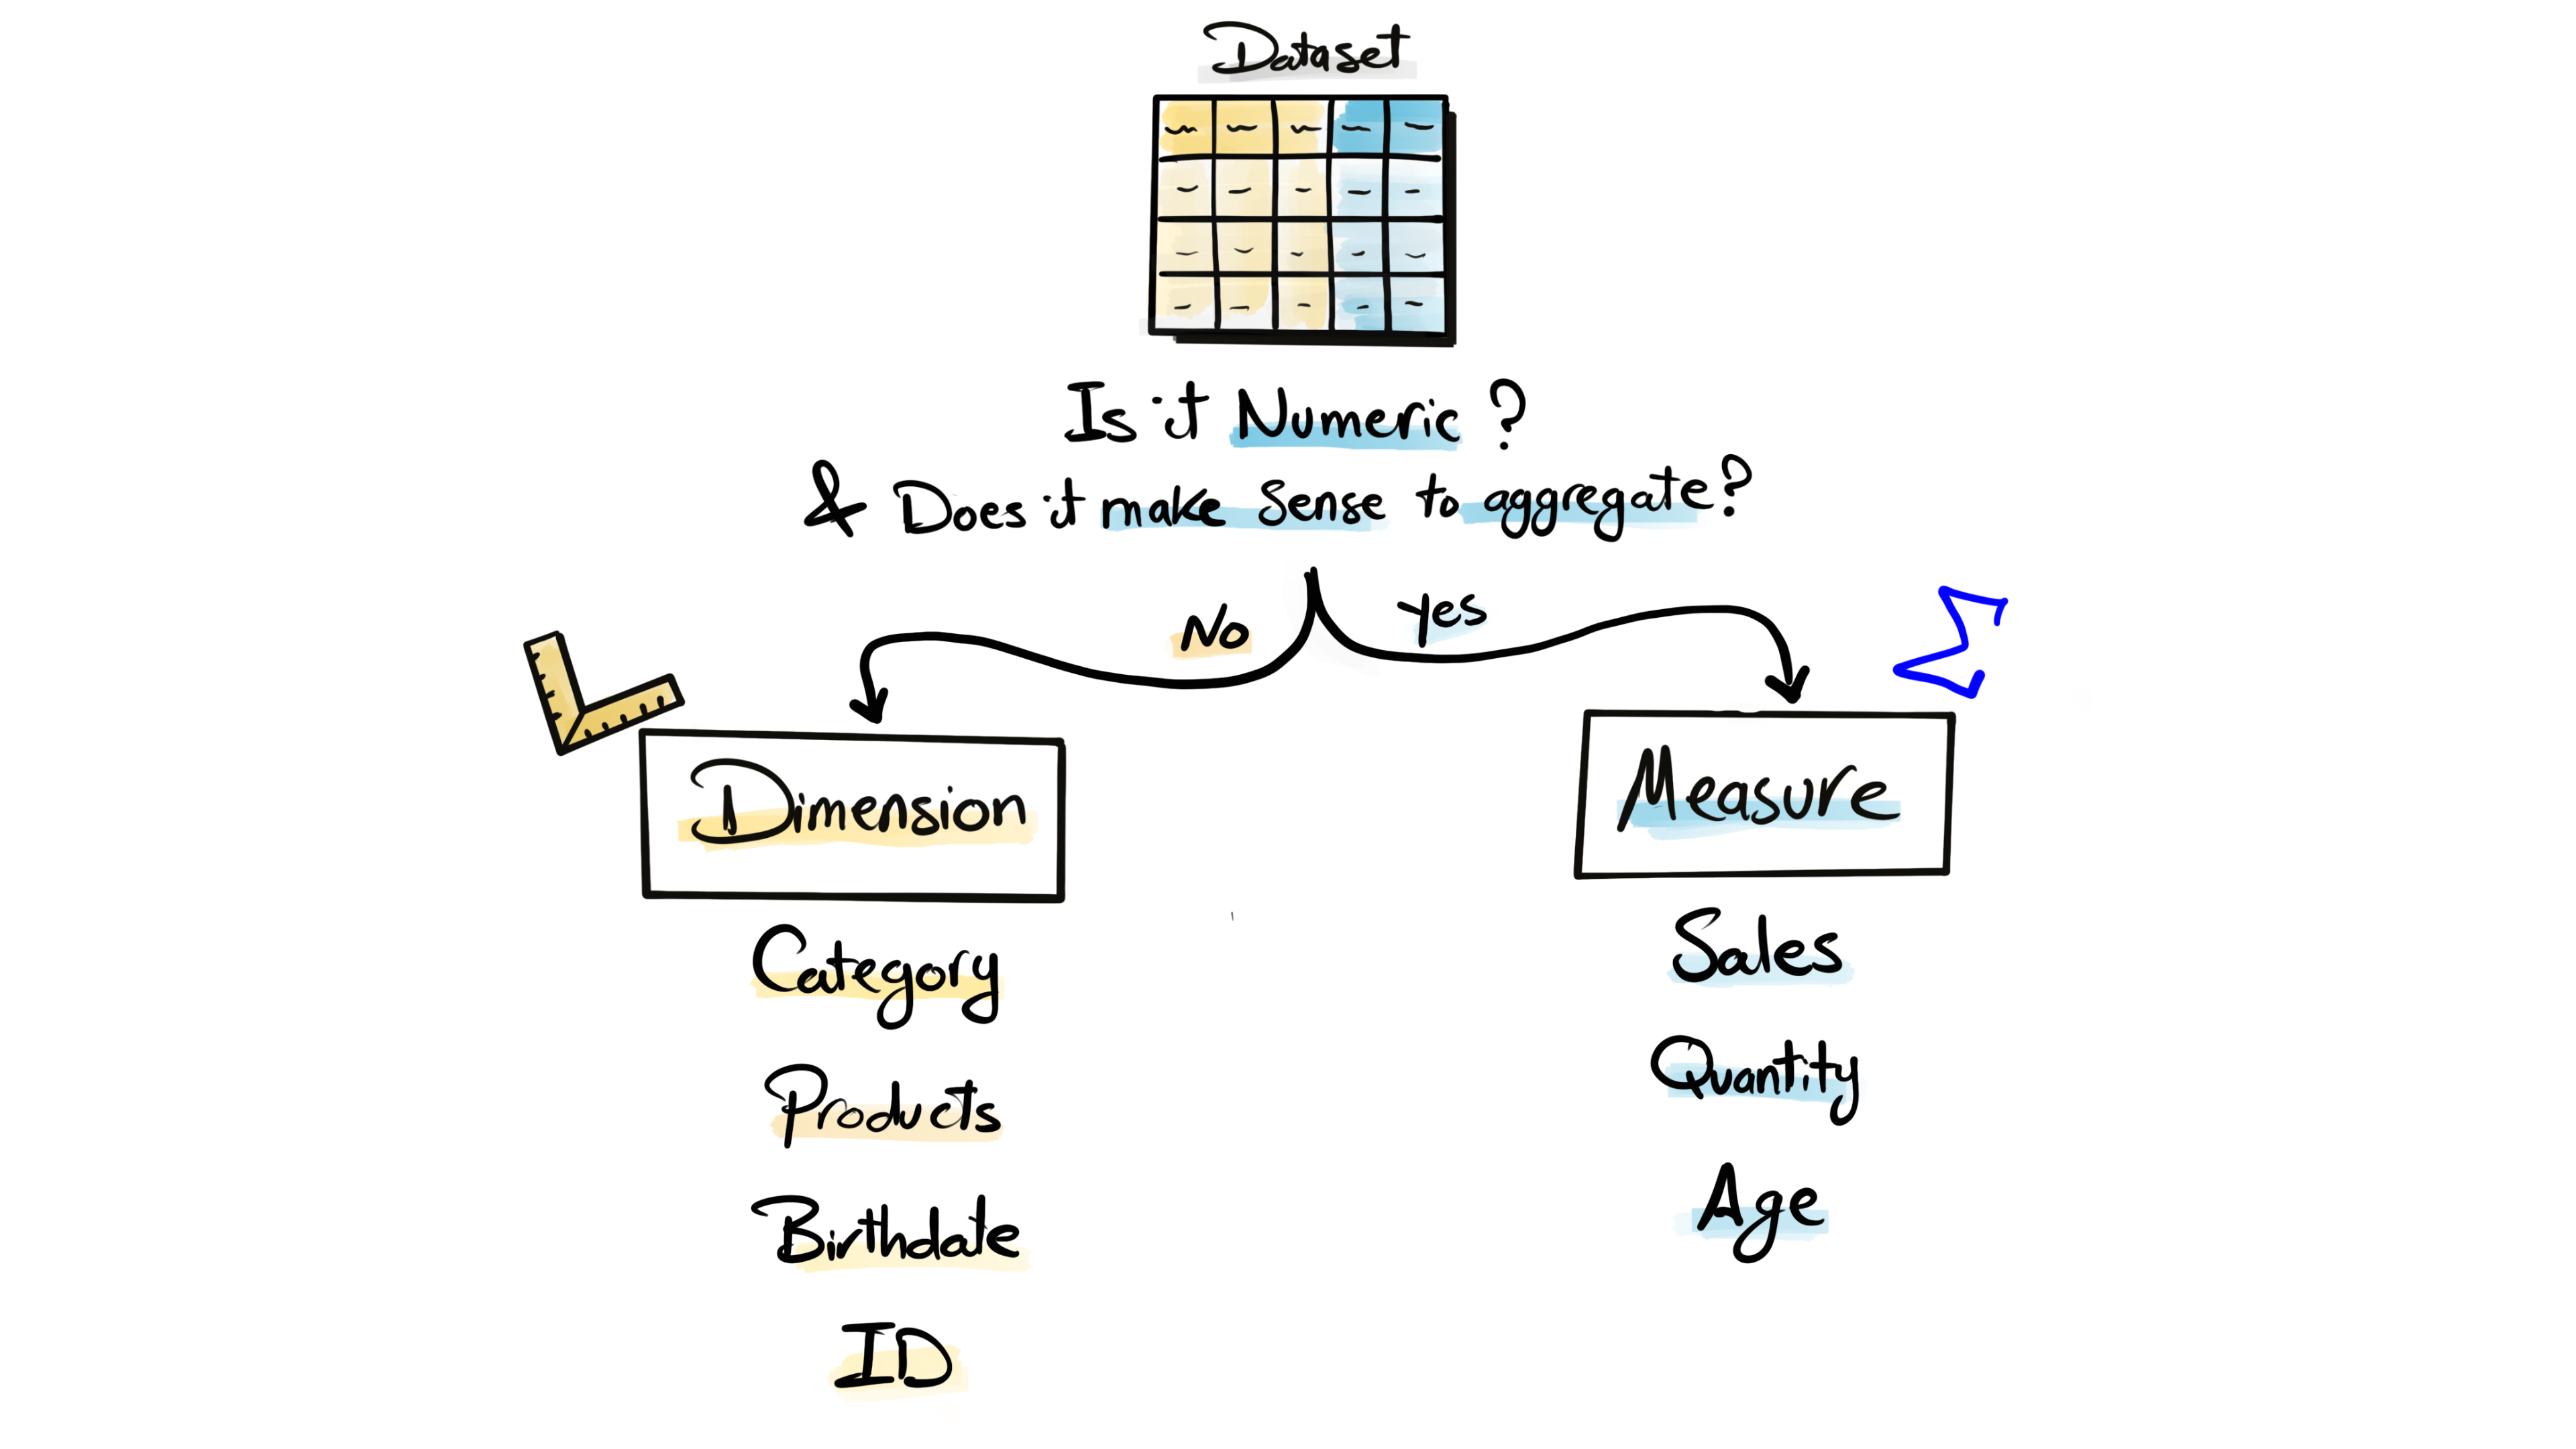 Dataset
Is it Numeric?
& Does it make sense to aggregate?
No
yes
Dimension
Measure
Category
Products
Birthdate
ID
Sales
Quantity
Age